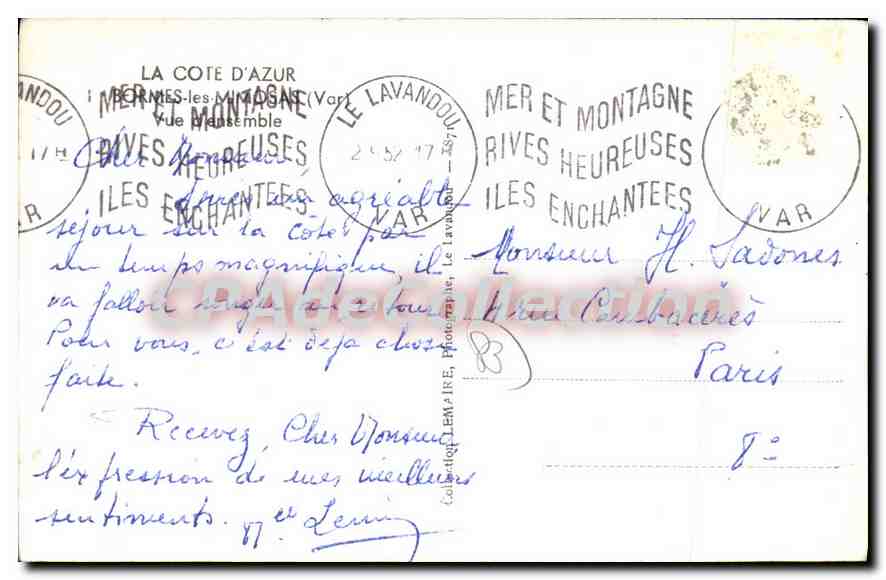 LA COTE D'AZUR
BORMES-les-MIMOSAS (Var)
Vue d'ensemble
MER ET MONTAGNE
RIVES HEUREUSES
ILES ENCHANTEES
LE LAVANDOU
17H
VAR
MER ET MONTAGNE
RIVES HEUREUSES
ILES ENCHANTEES
VAR
Cher Monsieur,
Après un agréable
séjour sur la côte par
un temps magnifique, il
va falloir songer au retour
Pour vous, c'est déjà chose
faite.
Recevez, Cher Monsieur
l'expression de mes meilleurs
sentiments.
Collection LEMAIRE, Photographe, Le Lavandou — 1871
Monsieur H. Sadones
4 rue Cambacérès
Paris
8°
83
CPAdeCollection